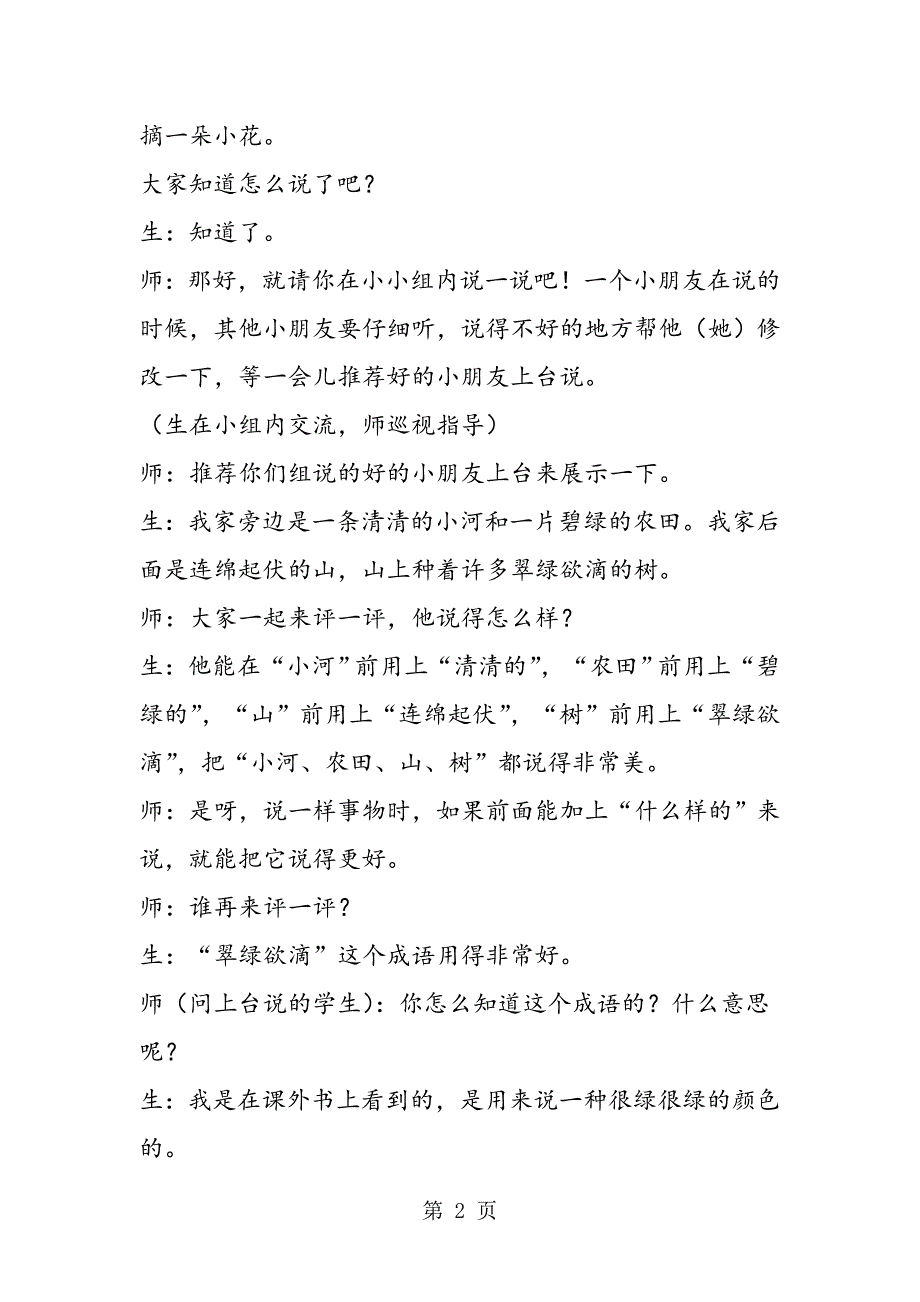 摘一朵小花。
大家知道怎么说了吧？
生：知道了。
师：那好，就请你在小小组内说一说吧！一个小朋友在说的
时候，其他小朋友要仔细听，说得不好的地方帮他（她）修
改一下，等一会儿推荐好的小朋友上台说。
（生在小组内交流，师巡视指导）
师：推荐你们组说的好的小朋友上台来展示一下。
生：我家旁边是一条清清的小河和一片碧绿的农田。我家后
面是连绵起伏的山，山上种着许多翠绿欲滴的树。
师：大家一起来评一评，他说得怎么样？
生：他能在“小河”前用上“清清的”，“农田”前用上“碧
绿的”，“山”前用上“连绵起伏”，“树”前用上“翠绿欲
滴”，把“小河、农田、山、树”都说得非常美。
师：是呀，说一样事物时，如果前面能加上“什么样的”来
说，就能把它说得更好。
师：谁再来评一评？
生：“翠绿欲滴”这个成语用得非常好。
师（问上台说的学生）：你怎么知道这个成语的？什么意思
呢？
生：我是在课外书上看到的，是用来说一种很绿很绿的颜色
的。
第 2 页